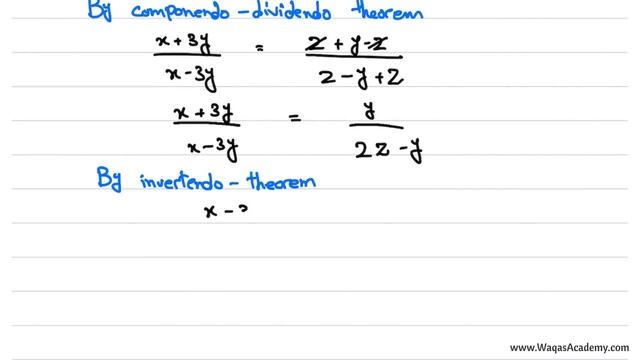 By componendo-dividendo theorem
x+3y / x-3y = z+y-z / z-y+z
x+3y / x-3y = y / 2z-y
By invertendo-theorem
x-
www.WaqasAcademy.com